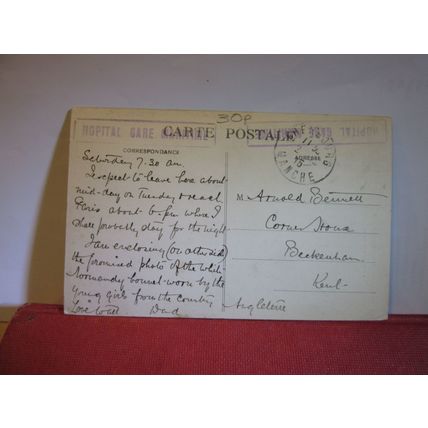 30p
HOPITAL GARE MARITIME
CARTE POSTALE
HOPITAL GARE
CORRESPONDANCE
ADRESSE
MANCHE
Saturday 7.30 am.
I expect to leave here about
mid-day on Tuesday & reach
Paris about 6 pm where I
shall probably stay for the night
I am enclosing (on other side)
the promised photo of the white
Normandy bonnet worn by the
young girls from the country
Love to all Dad
M Arnold Bennett
Corner House
Beckenham
Kent
Angleterre